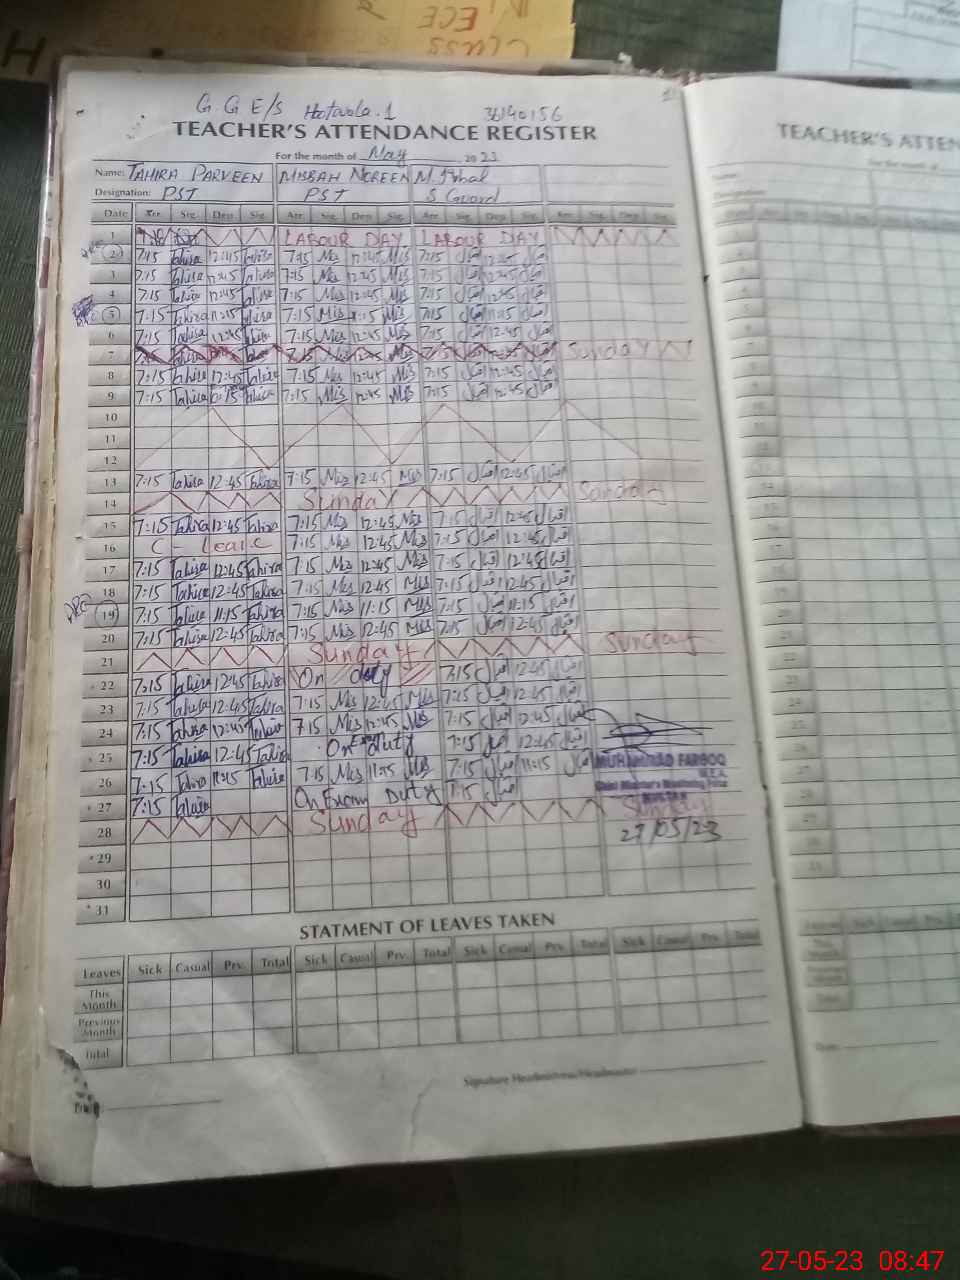 CLASS
ECE
IN
H
G. G. E/S Hootawala. 1 36140156
TEACHER'S ATTENDANCE REGISTER
For the month of May 2023
Name: TAHIRA PARVEEN MISBAH NOREEN M. Iqbal
Designation: PST PST S. Guard
Date Arr. Sig. Dep. Sig. Arr. Sig. Dep. Sig. Arr. Sig. Dep. Sig. Arr. Sig. Dep. Sig.
1 LABOUR DAY LABOUR DAY
2 7:15 Tahira 12:45 Tahira 7:15 Mis 12:45 Mis 7:15 اقبال 12:45 اقبال
3 7:15 Tahira 12:45 Tahira 7:15 Mis 12:45 Mis 7:15 اقبال 12:45 اقبال
4 7:15 Tahira 12:45 Tahira 7:15 Mis 12:45 Mis 7:15 اقبال 12:45 اقبال
5 7:15 Tahira 11:15 Tahira 7:15 Mis 11:15 Mis 7:15 اقبال 11:15 اقبال
6 7:15 Tahira 12:45 Tahira 7:15 Mis 12:45 Mis 7:15 اقبال 12:45 اقبال
7 Sunday
8 7:15 Tahira 12:45 Tahira 7:15 Mis 12:45 Mis 7:15 اقبال 12:45 اقبال
9 7:15 Tahira Tahira 7:15 Mis 12:45 Mis 7:15 اقبال 12:45 اقبال
10
11
12
13 7:15 Tahira 12:45 Tahira 7:15 Mis 12:45 Mis 7:15 اقبال 12:45 اقبال
14 Sunday Sunday
15 7:15 Tahira 12:45 Tahira 7:15 Mis 12:45 Mis 7:15 اقبال 12:45 اقبال
16 C - Leave 7:15 Mis 12:45 Mis 7:15 اقبال 12:45 اقبال
17 7:15 Tahira 12:45 Tahira 7:15 Mis 12:45 Mis 7:15 اقبال 12:45 اقبال
18 7:15 Tahira 12:45 Tahira 7:15 Mis 12:45 Mis 7:15 اقبال 12:45 اقبال
19 7:15 Tahira 11:15 Tahira 7:15 Mis 11:15 Mis 7:15 اقبال 11:15 اقبال
20 7:15 Tahira 12:45 Tahira 7:15 Mis 12:45 Mis 7:15 اقبال 12:45 اقبال
21 Sunday Sunday
22 7:15 Tahira 12:45 Tahira On duty 7:15 اقبال 12:45 اقبال
23 7:15 Tahira 12:45 Tahira 7:15 Mis 12:45 Mis 7:15 اقبال 12:45 اقبال
24 7:15 Tahira 12:45 Tahira 7:15 Mis 12:45 Mis 7:15 اقبال 12:45 اقبال
25 7:15 Tahira 12:45 Tahira On duty 7:15 اقبال 12:45 اقبال
26 7:15 Tahira 11:15 Tahira 7:15 Mis 11:15 Mis 7:15 اقبال 11:15 اقبال
27 7:15 Tahira On Exam Duty 7:15 اقبال
28 Sunday Sunday
29
30
31
MUHAMMAD FAROOQ
M.E.A.
Chief Minister's Monitoring Force
MULTAN
27/05/23
STATMENT OF LEAVES TAKEN
Leaves Sick Casual Prv. Total Sick Casual Prv. Total Sick Casual Prv. Total Sick Casual Prv. Total
This Month
Previous Month
Total
Signature Headmistress/Headmaster
TEACHER'S ATTEN
For the month of
27-05-23 08:47